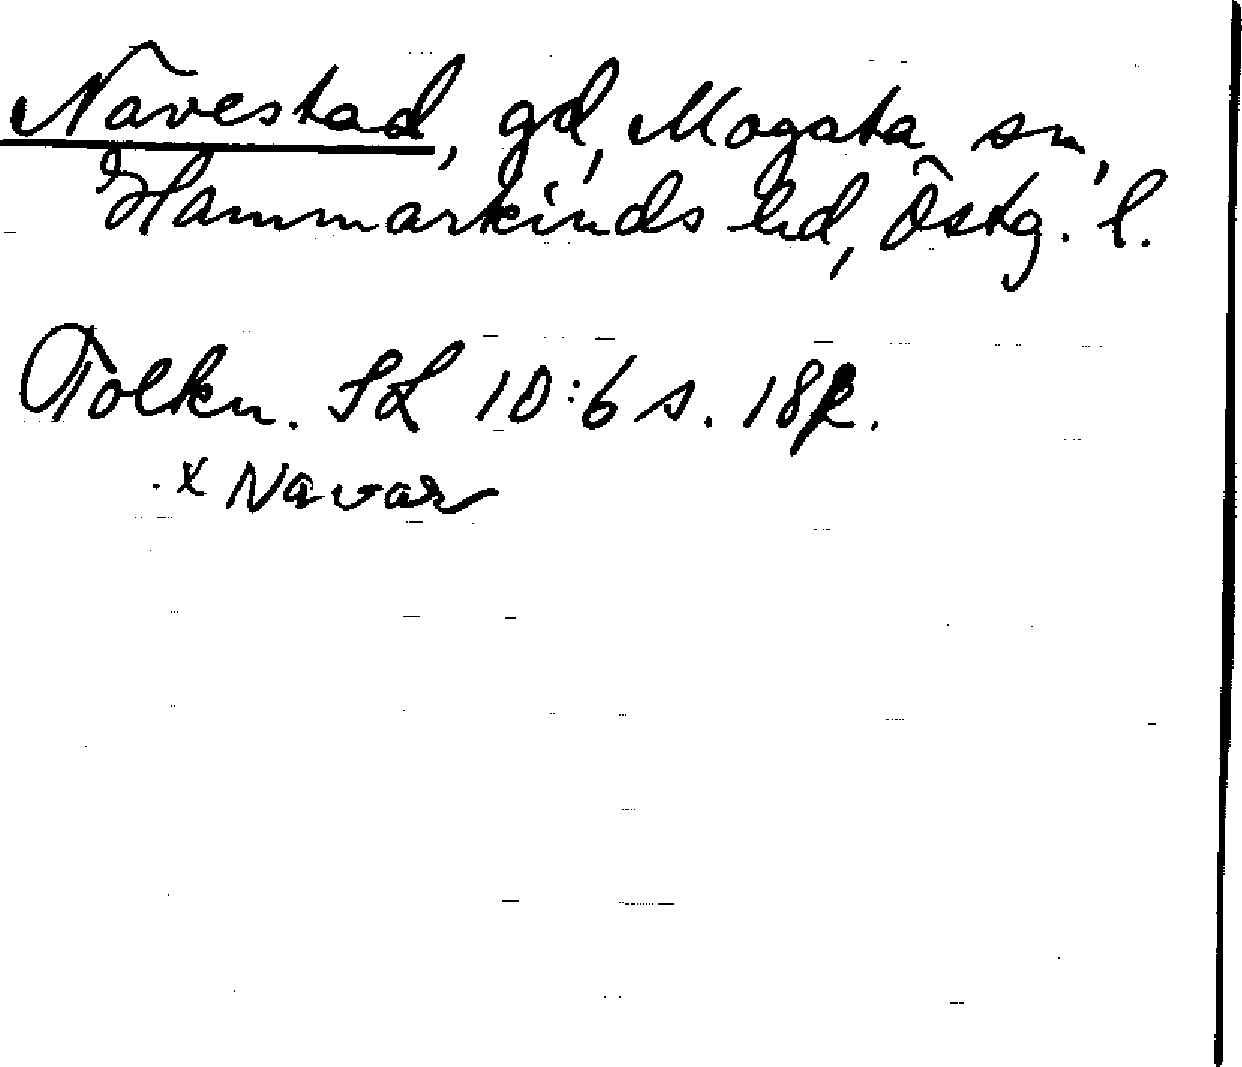 Navestad, gd, Mogata sn,
Hammarkinds hd, Östg. l.
Tolkn. SL 10:6 s.
x Navar